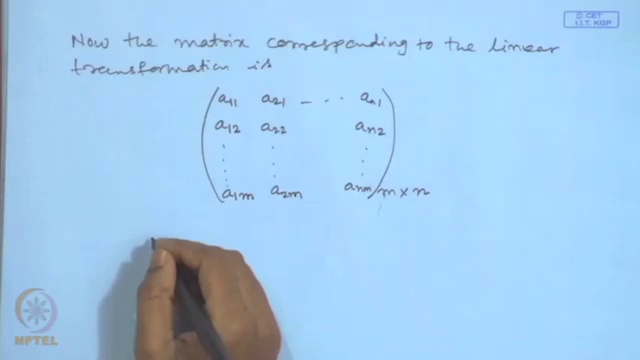 © CET
I.I.T. KGP
Now the matrix corresponding to the linear
transformation is
a11 a21 - - - - an1
a12 a22 an2
a1m a2m anm m×n
NPTEL